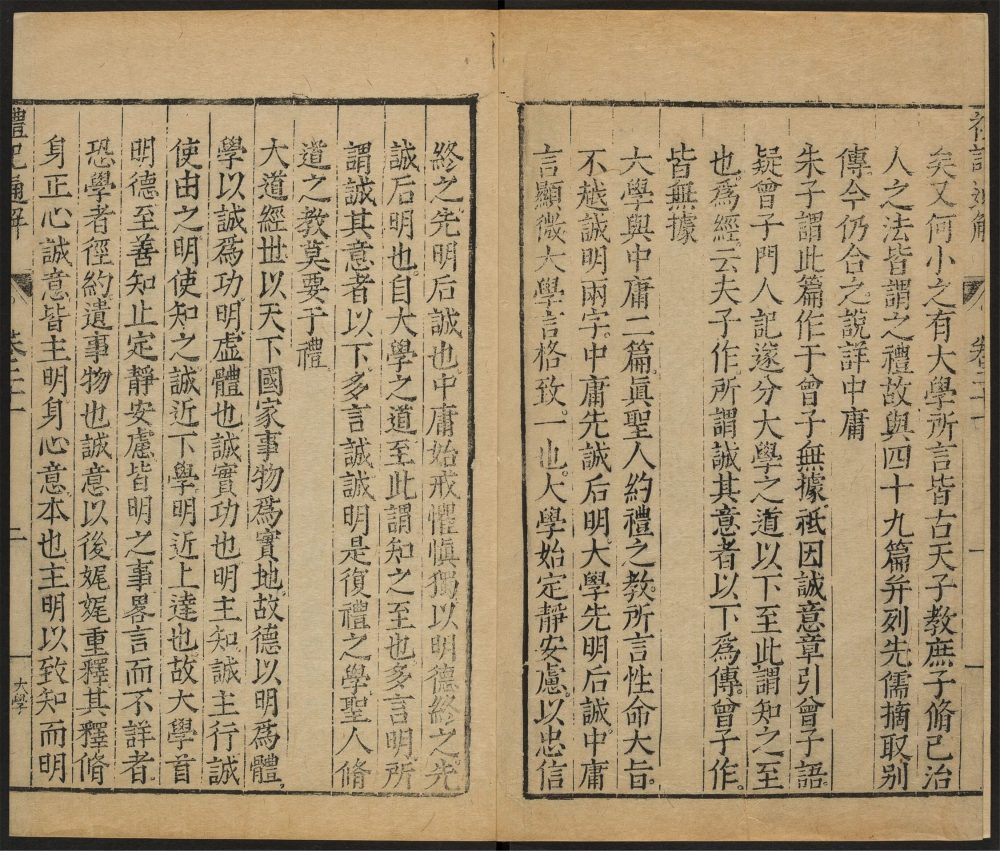 禮記通解
卷二十一
一
矣又何小之有大學所言皆古天子教庶子脩己治
人之法皆謂之禮故與四十九篇并列先儒摘取別
傳今仍合之說詳中庸
朱子謂此篇作于曾子無據祇因誠意章引曾子語
疑曾子門人記遂分大學之道以下至此謂知之至
也爲經云夫子作所謂誠其意者以下爲傳曾子作
皆無據
大學與中庸二篇眞聖人約禮之教所言性命大旨
不越誠明兩字中庸先誠后明大學先明后誠中庸
言顯微大學言格致一也大學始定靜安慮以忠信
終之先明后誠也中庸始戒懼慎獨以明德終之先
誠后明也自大學之道至此謂知之至也多言明所
謂誠其意者以下多言誠誠明是復禮之學聖人脩
道之教莫要于禮
大道經世以天下國家事物爲實地故德以明爲體
學以誠爲功明虛體也誠實功也明主知誠主行誠
使由之明使知之誠近下學明近上達也故大學首
明德至善知止定靜安慮皆明之事畧言而不詳者
恐學者徑約遺事物也誠意以後娓娓重釋其釋脩
身正心誠意皆主明身心意本也主明以致知而明
禮記通解
卷二十一
二
大學